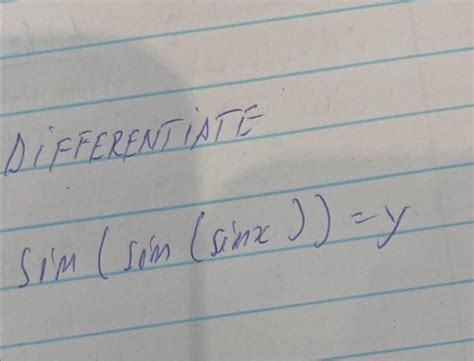 DiFFERENTiATE
Sim ( sim ( sinx ) ) = y